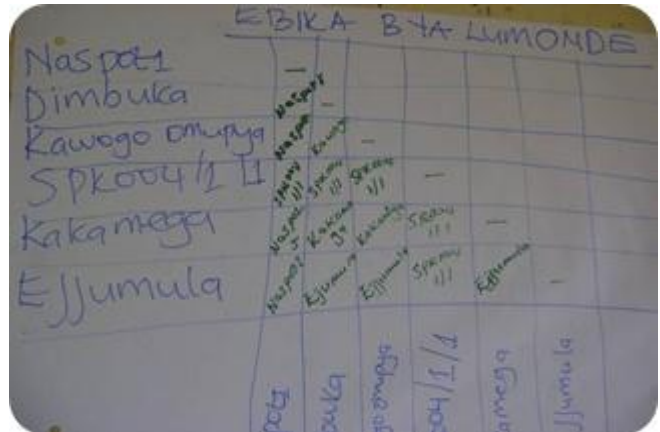 EBIKA BYA LUMONDE
Naspot1 —
Dimbuka Naspot1 —
Kawogo omupya Naspot Kawogo —
SPK004/1/1 SPK004/1/1 SPK004/1/1 —
Kakamega Naspot SPK004/1/1 —
Ejjumula Naspot Ejjumula Ejjumula SPK004/1/1 Ejjumula —
pot1 buka omupya 004/1/1 amega jjumula